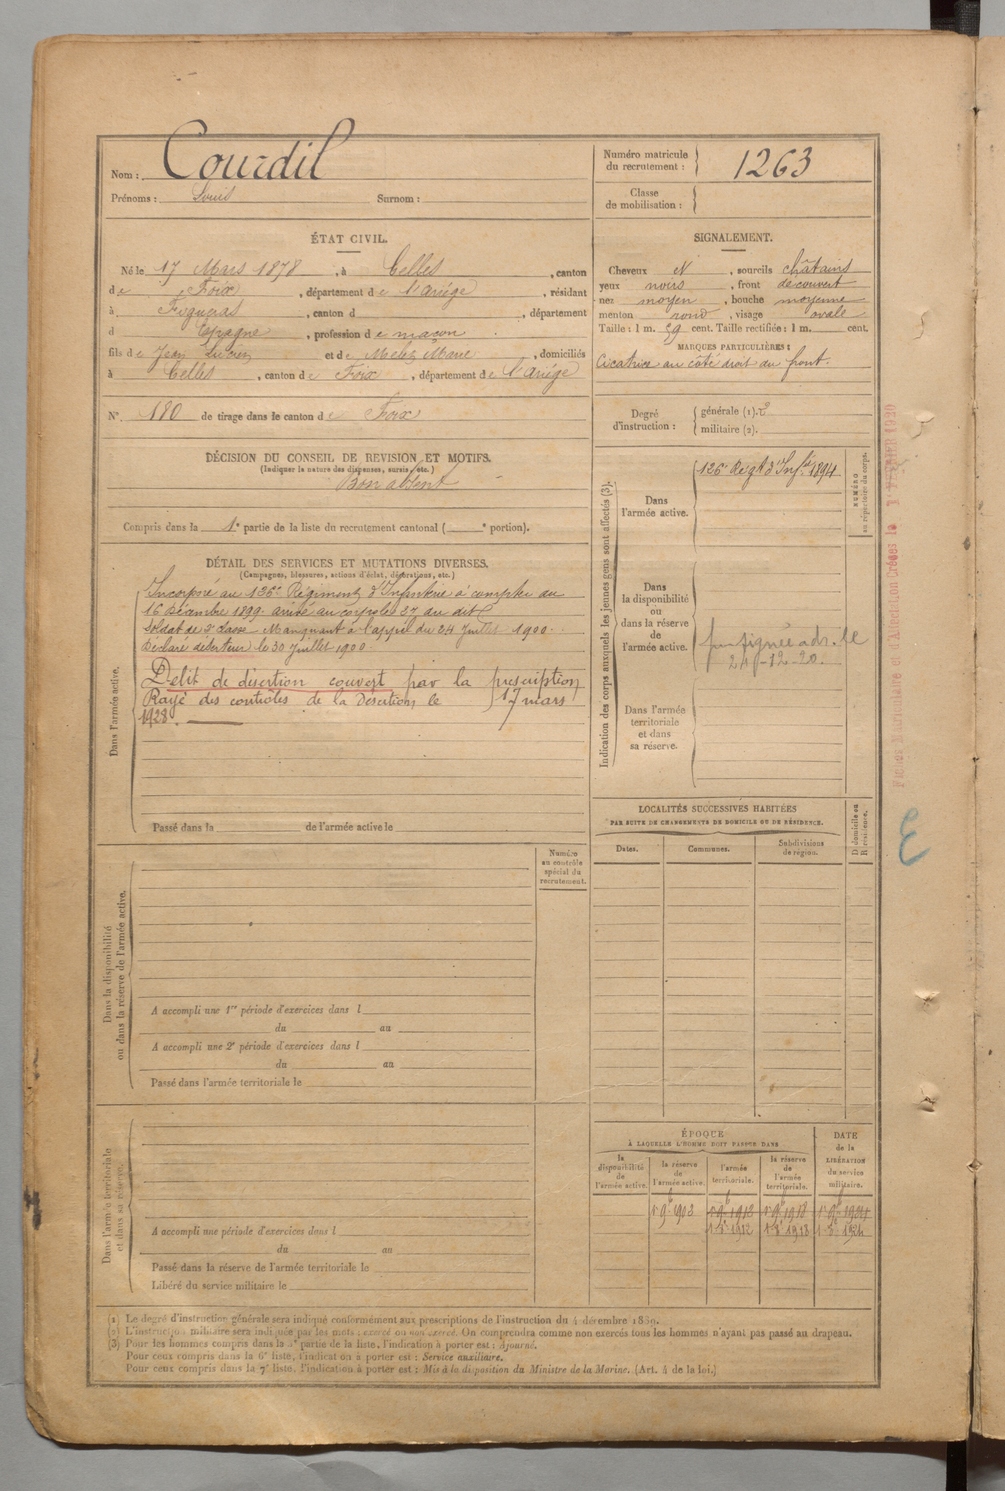 Nom : Courdil
Prénoms : Louis Surnom :
Numéro matricule du recrutement : 1263
Classe de mobilisation :
ÉTAT CIVIL.
Né le 17 Mars 1878, à Celles, canton
de Foix, département de l'Ariège, résidant
à Figueras, canton d , département
d Espagne, profession de maçon.
fils de Jean Lucien et de Melez Marie, domiciliés
à Celles, canton de Foix, département de l'Ariège
N° 180 de tirage dans le canton de Foix
SIGNALEMENT.
Cheveux N, sourcils châtains
yeux noirs, front découvert
nez moyen, bouche moyenne
menton rond, visage ovale
Taille : 1 m. 59 cent. Taille rectifiée : 1 m. cent.
MARQUES PARTICULIÈRES :
Cicatrice au côté droit du front.
Degré d'instruction : générale (1). 2
militaire (2).
DÉCISION DU CONSEIL DE REVISION ET MOTIFS.
(Indiquer la nature des dispenses, sursis, etc.)
Bon absent
Compris dans la 1e partie de la liste du recrutement cantonal ( e portion).
DÉTAIL DES SERVICES ET MUTATIONS DIVERSES.
(Campagnes, blessures, actions d'éclat, décorations, etc.)
Dans l'armée active.
Incorporé au 126e Régiment d'Infanterie à compter du
16 Décembre 1899. arrivé au corps le 27 du dit
Soldat de 2e classe. Manquant à l'appel du 24 Juillet 1900.
Déclaré déserteur le 30 Juillet 1900.
Délit de désertion couvert par la prescription
Rayé des contrôles de la Désertion le 17 mars
1928.
Passé dans la de l'armée active le
Indication des corps auxquels les jeunes gens sont affectés (3).
NUMÉRO au répertoire du corps.
Dans l'armée active.
126e Régt d'Infie 1894
Dans la disponibilité ou dans la réserve de l'armée active.
24-12-20.
Dans l'armée territoriale et dans sa réserve.
Fiches Matriculaire et d'Affectation Créées le FÉVRIER 1920
E
LOCALITÉS SUCCESSIVES HABITÉES
PAR SUITE DE CHANGEMENTS DE DOMICILE OU DE RÉSIDENCE.
Dates. Communes. Subdivisions de région. D domicile ou R résidence.
Dans la disponibilité ou dans la réserve de l'armée active.
Numéro au contrôle spécial du recrutement.
A accompli une 1re période d'exercices dans l
du au
A accompli une 2e période d'exercices dans l
du au
Passé dans l'armée territoriale le
Dans l'armée territoriale et dans sa réserve.
A accompli une période d'exercices dans l
du au
Passé dans la réserve de l'armée territoriale le
Libéré du service militaire le
ÉPOQUE
À LAQUELLE L'HOMME DOIT PASSER DANS
la disponibilité de l'armée active. la réserve de l'armée active. l'armée territoriale. la réserve de l'armée territoriale.
DATE de la LIBÉRATION du service militaire.
1 9bre 1903 1 9bre 1913 1 9bre 1918 1 9bre 1924
1 8bre 1912 1 8bre 1918 1 8bre 1924
(1) Le degré d'instruction générale sera indiqué conformément aux prescriptions de l'instruction du 4 décembre 1889.
(2) L'instruction militaire sera indiquée par les mots : exercé ou non exercé. On comprendra comme non exercés tous les hommes n'ayant pas passé au drapeau.
(3) Pour les hommes compris dans la 5e partie de la liste, l'indication à porter est : Ajourné.
Pour ceux compris dans la 6e liste, l'indication à porter est : Service auxiliaire.
Pour ceux compris dans la 7e liste, l'indication à porter est : Mis à la disposition du Ministre de la Marine. (Art. 4 de la loi.)